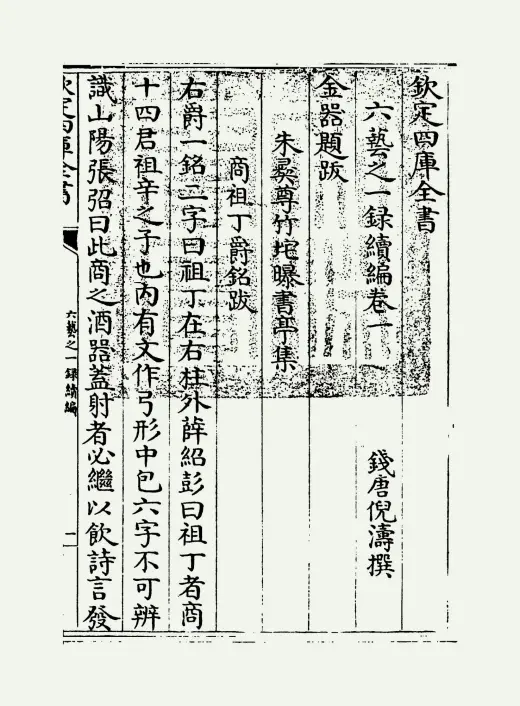 欽定四庫全書
六藝之一録續編卷一
錢唐倪濤撰
金器題跋
朱彛尊竹垞曝書亭集
商祖丁爵銘跋
右爵一銘二字曰祖丁在右柱外薛紹彭曰祖丁者商
十四君祖辛之子也内有文作弓形中包六字不可辨
識山陽張弨曰此商之酒器蓋射者必繼以飲詩言發
欽定四庫全書
六藝之一録續編
二